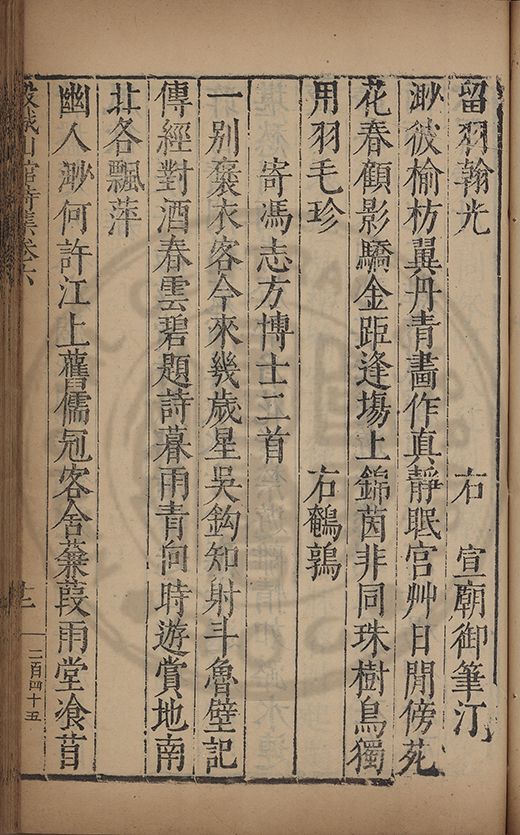 留羽翰光　右　宣廟御筆汀
渺彼榆枋翼丹青畫作真靜眠宮艸日閒傍苑
花春顧影驕金距逢塲上錦茵非同珠樹鳥獨
用羽毛珍　右鵪鶉
寄馮志方博士二首
一別褒衣客今來幾歲星吳鈎知射斗魯壁記
傳經對酒春雲碧題詩暮雨青何時遊賞地南
北各飄萍
幽人渺何許江上舊儒冠客舍蒹葭雨堂飡苜
城山館詩集卷六
二百四十五